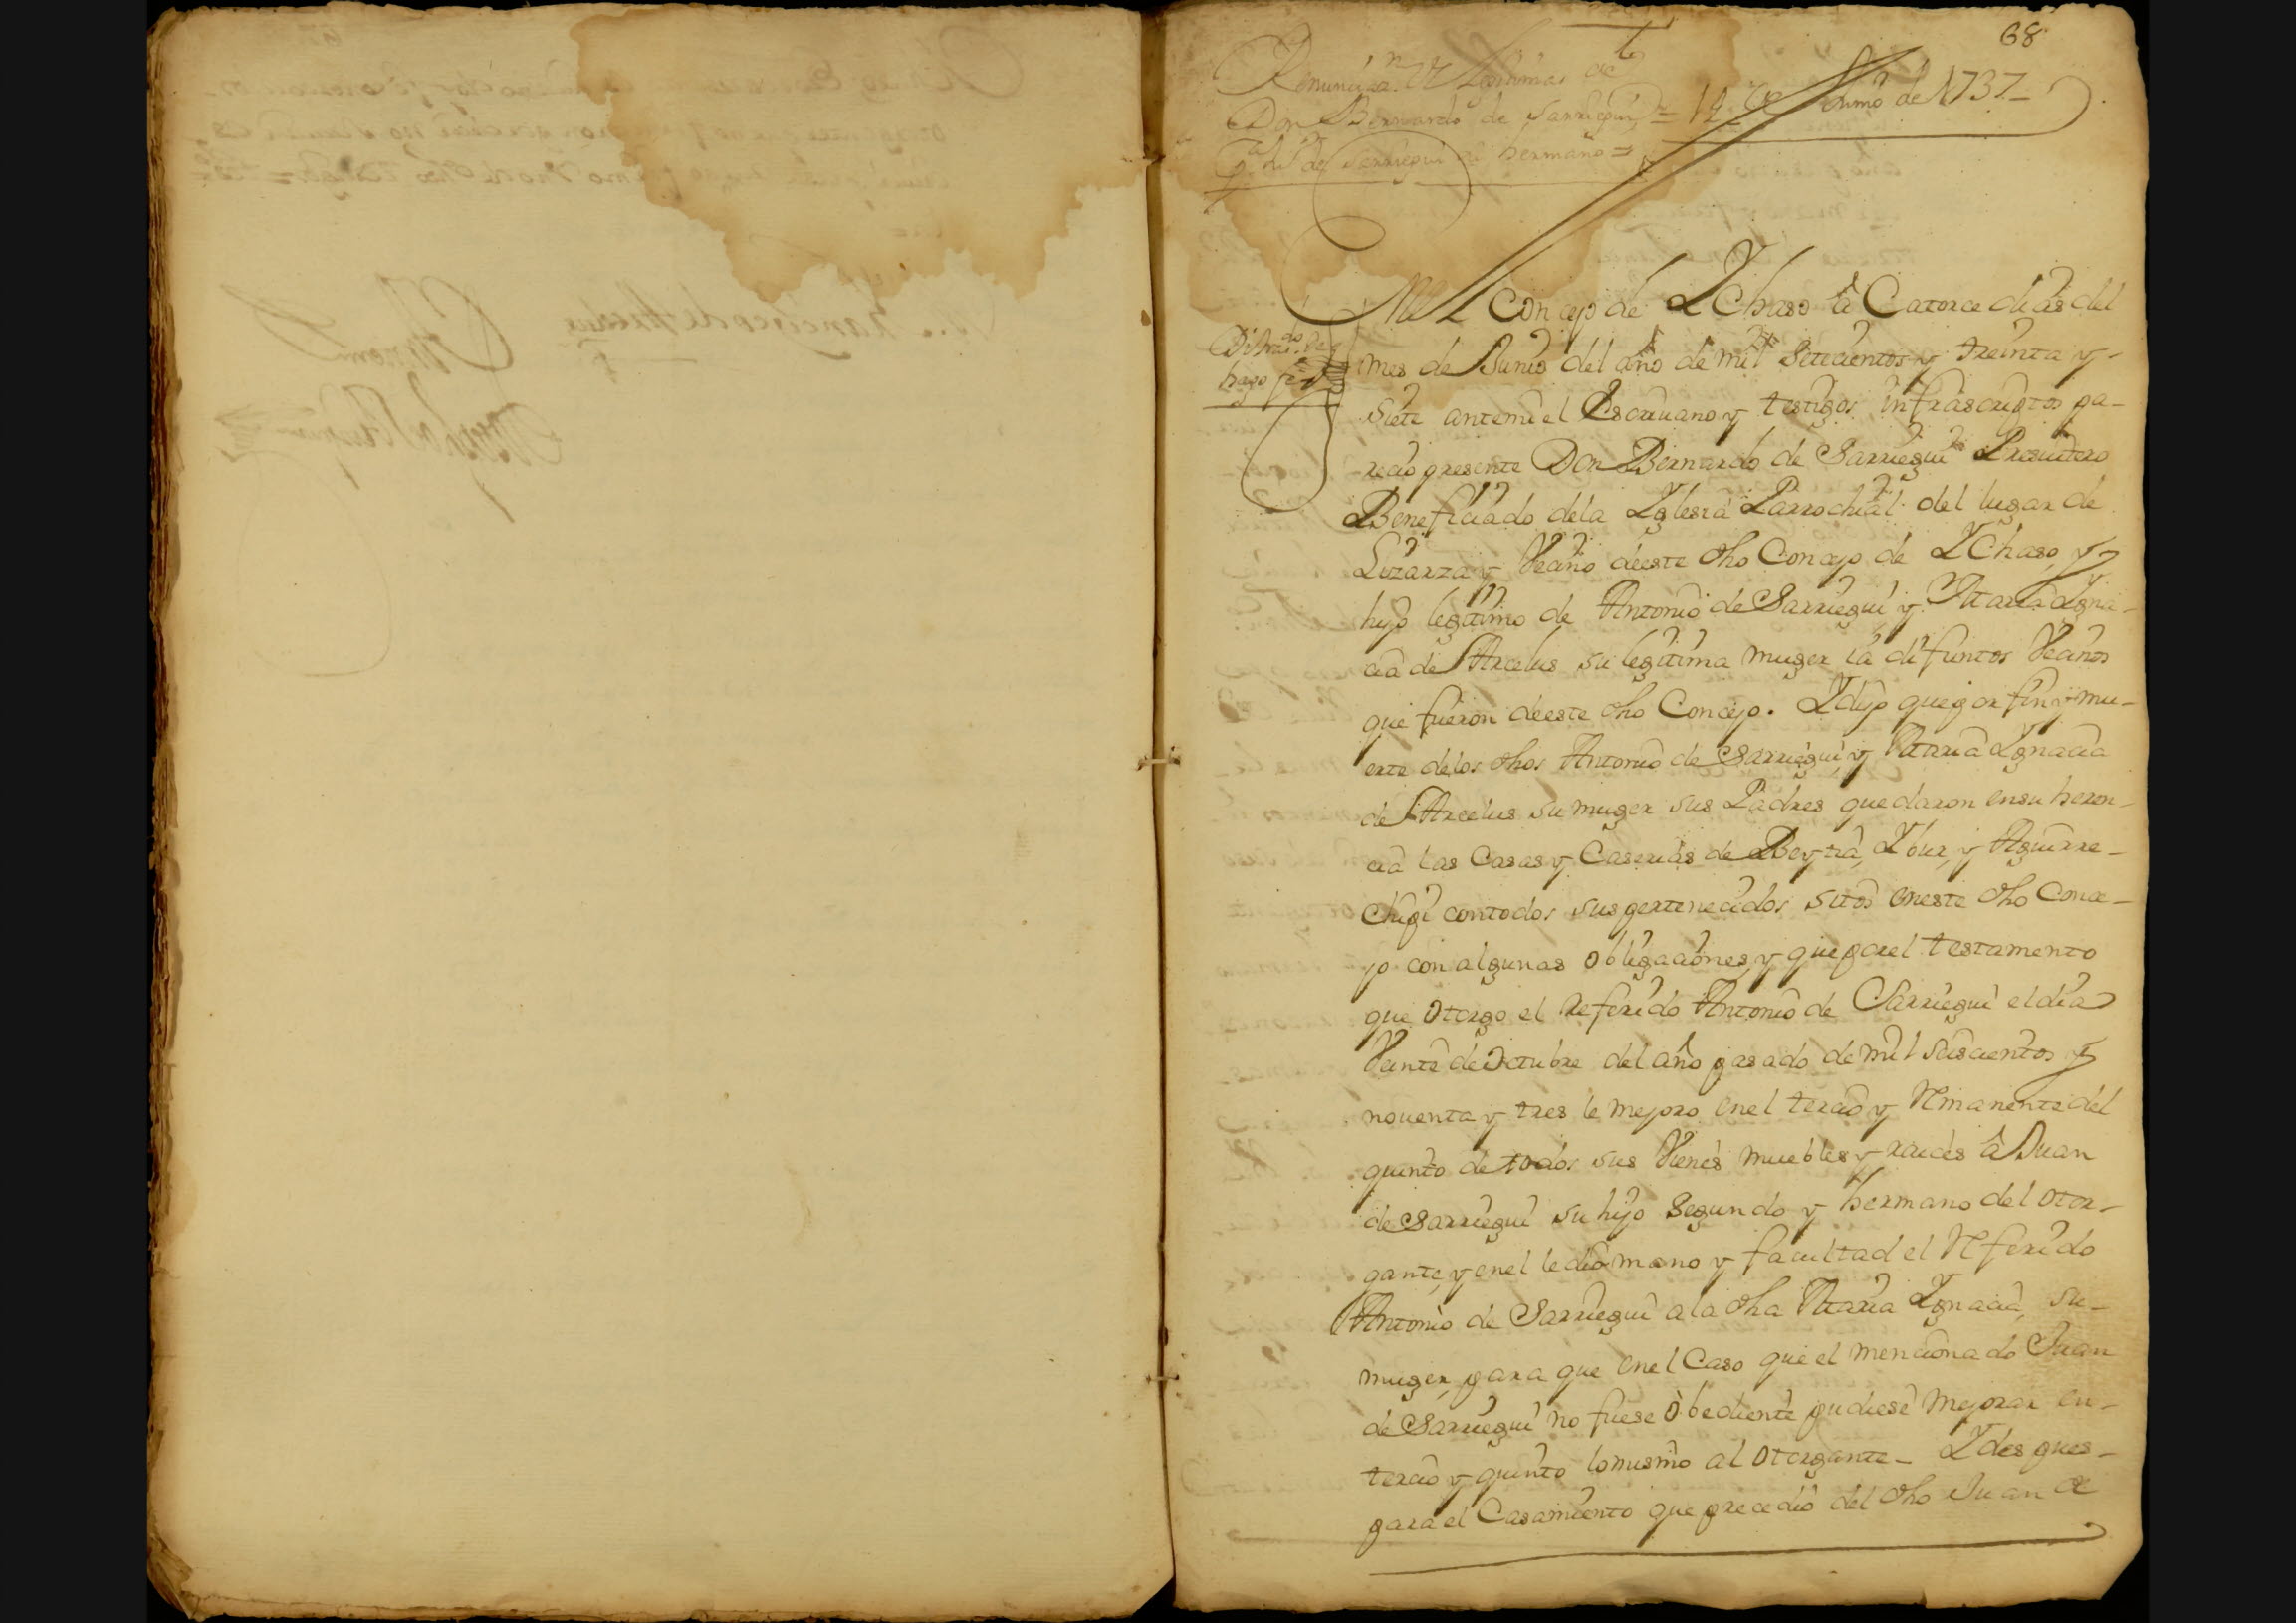 68
Renunciaz.n de legitimas de
Don Bernardo de Sarriegui = 14 de Junio de 1737
hermano =
En el Concejo de Ychaso â Catorce dias del
mes de Junio del año de mil Setecientos y treinta y
hago fee
siete antemi el Escriuano y testigos infrascriptos pa-
recio presente Don Bernardo de Sarriegui Presuitero
Beneficiado dela Yglesia Parrochial del lugar de
Lizarza y Vecino deeste dho Concejo de Ychaso, y
hijo legitimo de Antonio de Sarriegui y Maria Ygna-
cia de Arcelus su legitima muger ia difuntos Vecinos
que fueron deeste dho Concejo. Y dijo que por fin y mu-
erte delos dhos Antonio de Sarriegui, y Maria Ygnacia
de Arcelus su muger sus Padres quedaron ensu heren-
cia las Casas y Caserias de Beytia, Ybur, y Aguirre-
chipi contodos sus pertenecidos sitos eneste dho Conce-
jo con algunas obligaciones, y que por el testamento
que otorgo el referido Antonio de Sarriegui el dia
Veinte de Octubre del año pasado de mil seiscientos y
nouenta y tres le mejoro enel tercio y remanente del
quinto de todos sus Vienes muebles y raices â Juan
de Sarriegui su hijo Segundo y hermano del otor-
gante, y enel le dio mano y facultad el referido
Antonio de Sarriegui a la dha Maria Ygnacia, su-
muger, para que enel Caso que el mencionado Juan
de Sarriegui no fuese obediente pudiese mejorar en-
tercio y quinto lo mismo al otorgante_ Y despues-
para el Casamiento que precedio del dho Juan de